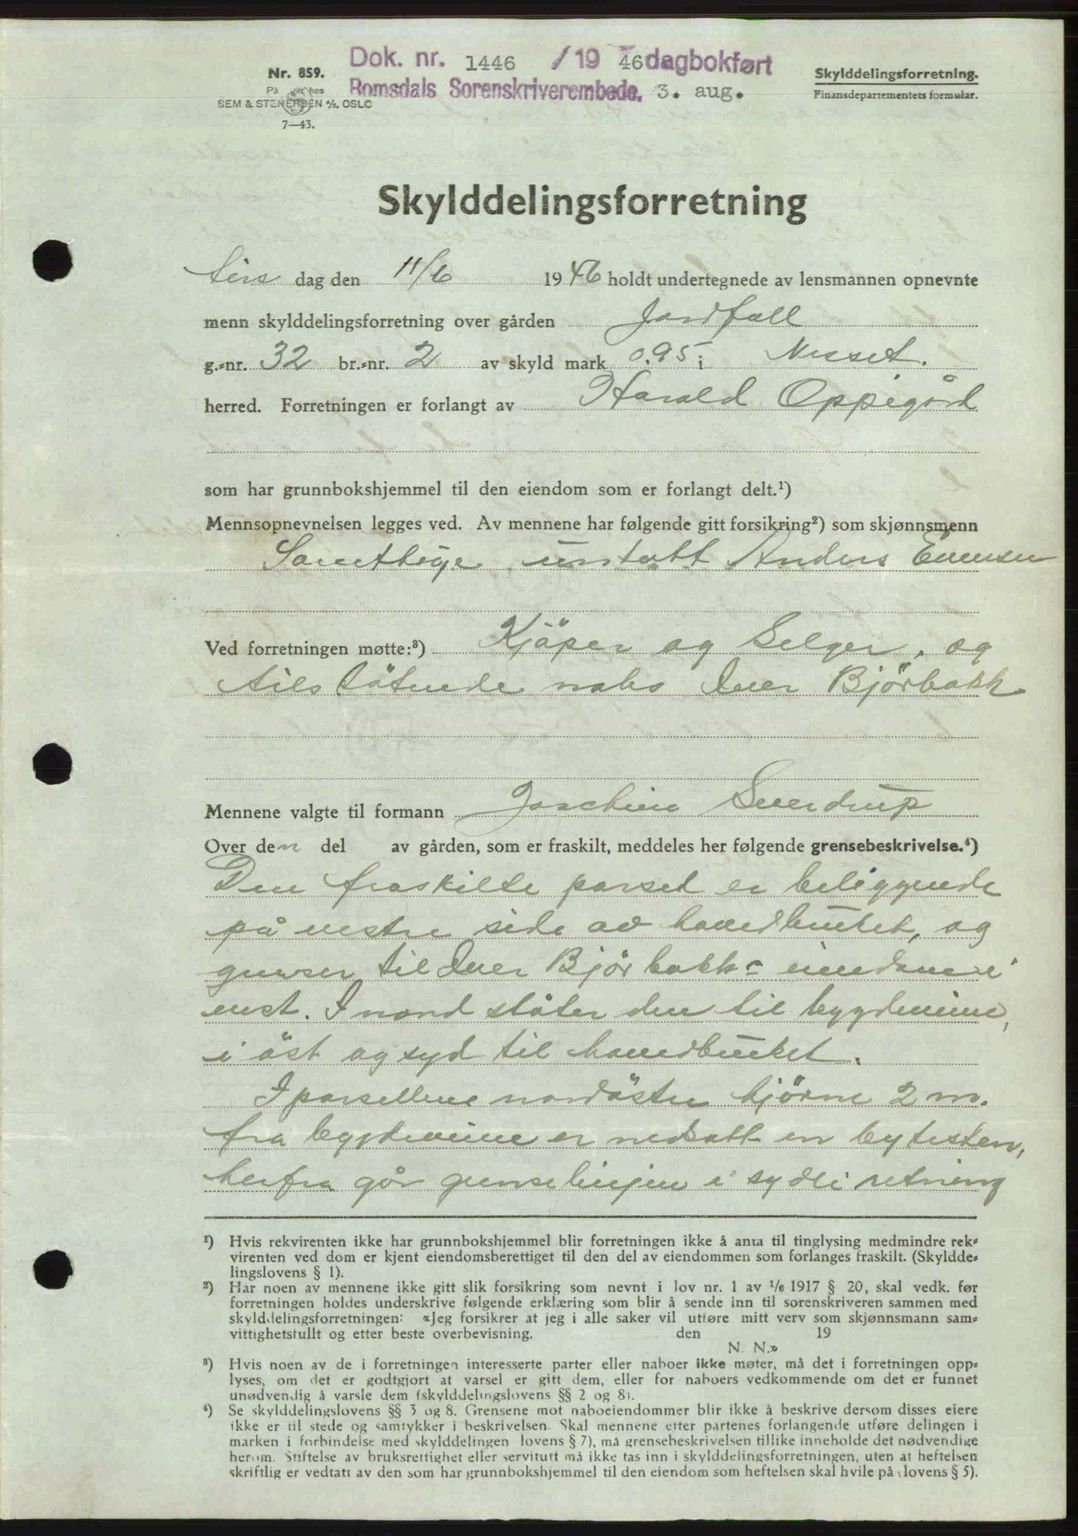 Dok. nr. 1446 /19 46 dagbokført
Romsdals Sorenskriverembede. 3. aug.
Nr. 859.
På hos
SEM & STENERSEN A/S. OSLO
7—43.
Skylddelingsforretning.
Finansdepartementets formular.
Skylddelingsforretning
tirs dag den 11/6 1946 holdt undertegnede av lensmannen opnevnte
menn skylddelingsforretning over gården Jordfall
g.-nr. 32 br.-nr. 2 av skyld mark 0.95 i Nesset.
herred. Forretningen er forlangt av Harald Oppigård
som har grunnbokshjemmel til den eiendom som er forlangt delt.¹)
Mennsopnevnelsen legges ved. Av mennene har følgende gitt forsikring²) som skjønnsmenn
Samtlige untatt Anders
Ved forretningen møtte:³) Kjöper og Selger, og
tilstötende nabo Iver Bjørbakk
Mennene valgte til formann Joachim Sverdrup
Over den del av gården, som er fraskilt, meddeles her følgende grensebeskrivelse.⁴)
Den fraskilte parsel er beliggende
på vestre side av hovedbruket, og
grenser til Iver Bjørbakks eiendom i
vest. I nord støter den til bygdeveien,
i öst og syd til hovedbruket.
I parsellens nordöstre hjörne 2 m.
fra bygdeveien er nedsatt en bytesten,
herfra går grenselinjen i sydli retning
¹) Hvis rekvirenten ikke har grunnbokshjemmel blir forretningen ikke å anta til tinglysing medmindre rek-
virenten ved dom er kjent eiendomsberettiget til den del av eiendommen som forlanges fraskilt. (Skyldde-
lingslovens § 1).
²) Har noen av mennene ikke gitt slik forsikring som nevnt i lov nr. 1 av 1/6 1917 § 20, skal vedk. før
forretningen holdes underskrive følgende erklæring som blir å sende inn til sorenskriveren sammen med
skylddelingsforretningen: «Jeg forsikrer at jeg i alle saker vil utføre mitt verv som skjønnsmann sam-
vittighetsfullt og etter beste overbevisning. den 19
N. N.»
³) Hvis noen av de i forretningen interesserte parter eller naboer ikke møter, må det i forretningen opp-
lyses, om det er godtgjort at varsel er gitt dem, eller for naboers vedkommende om det er funnet
unødvendig å varsle dem (skylddelingslovens §§ 2 og 8).
⁴) Se skylddelingslovens §§ 3 og 8. Grensene mot naboeiendommer blir ikke å beskrive dersom disses eiere
ikke er til stede og samtykker i beskrivelsen. Skal mennene etter partenes forlangende utføre delingen i
marken i forbindelse med skylddelingen (lovens § 7), må grensebeskrivelsen tillike inneholde det nødvendige
herom. Stiftelse av bruksrettighet eller servitutt må ikke tas inn i skylddelingsforretningen, uten at heftelsen
skriftlig er vedtatt av den som har grunnbokshjemmel til den eiendom som heftelsen skal hvile på (lovens § 5).